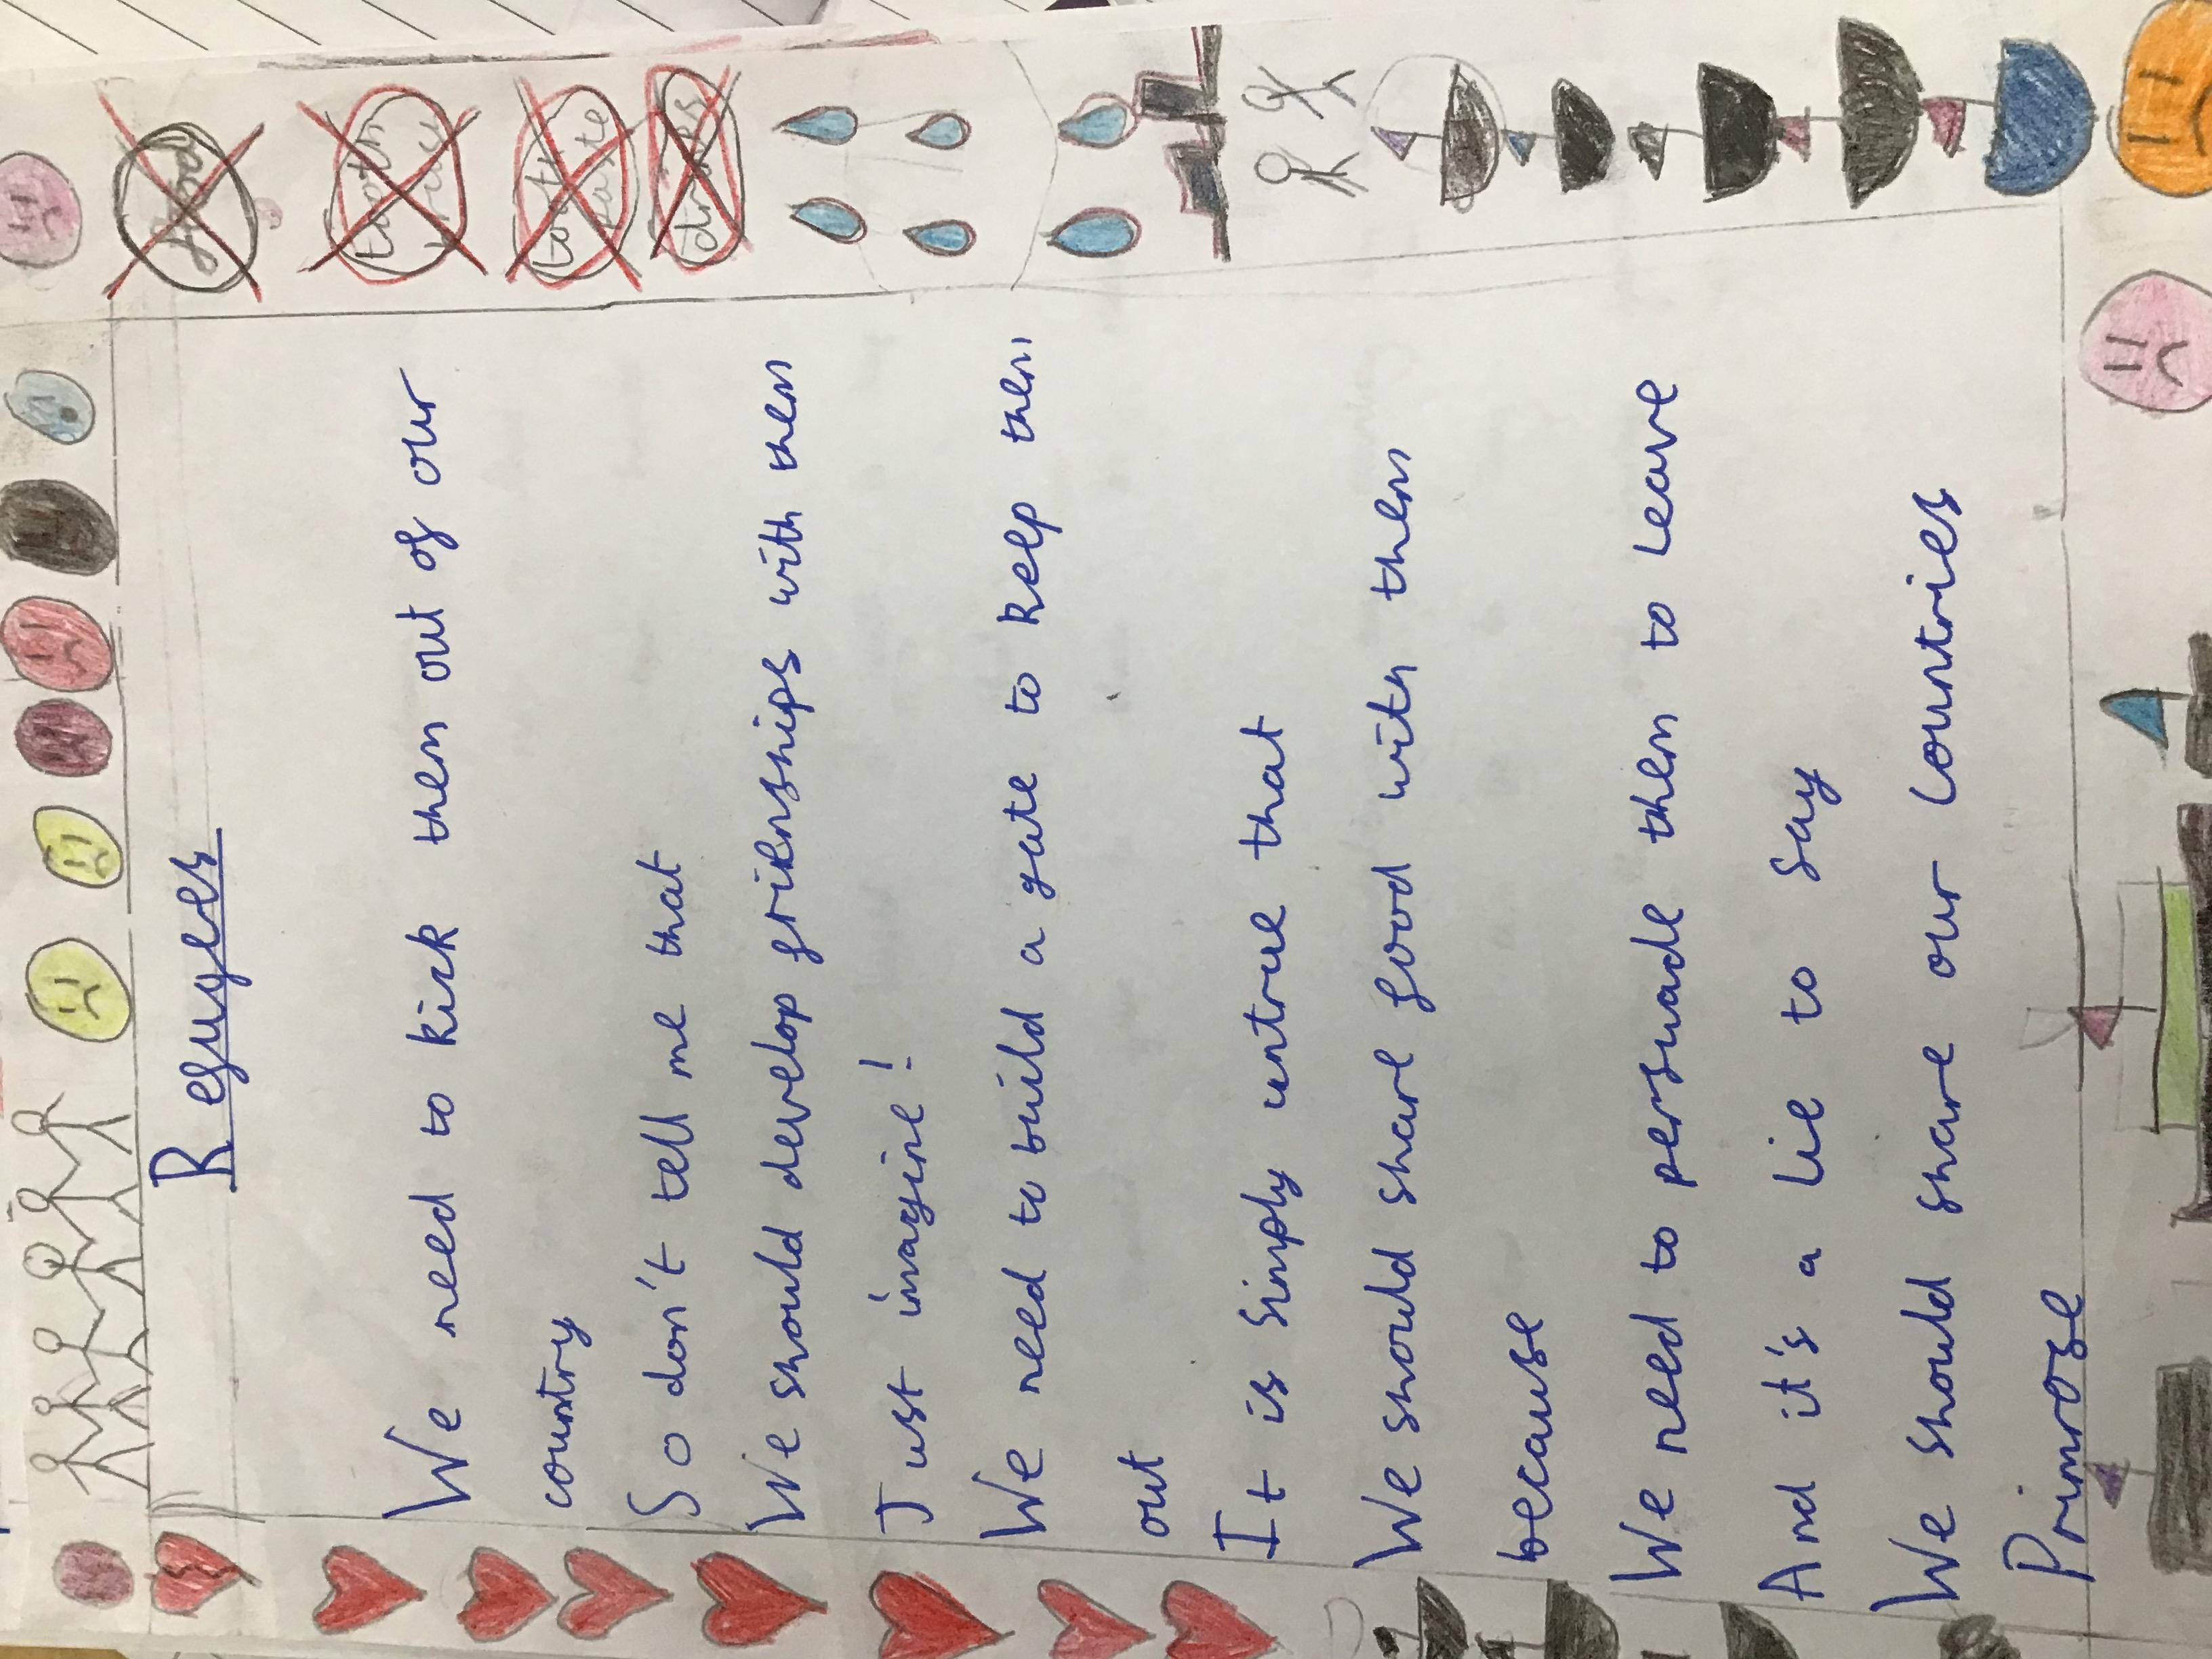 Refugees
We need to kick them out of our
country
So don't tell me that
We should develop frienships with them
Just imagine!
We need to build a gate to keep them
out
It is simply untrue that
We should share food with them
because
We need to persuade them to leave
And it's a lie to say
We should share our countries
Primrose
food
tooth
tooth
paste
drinks